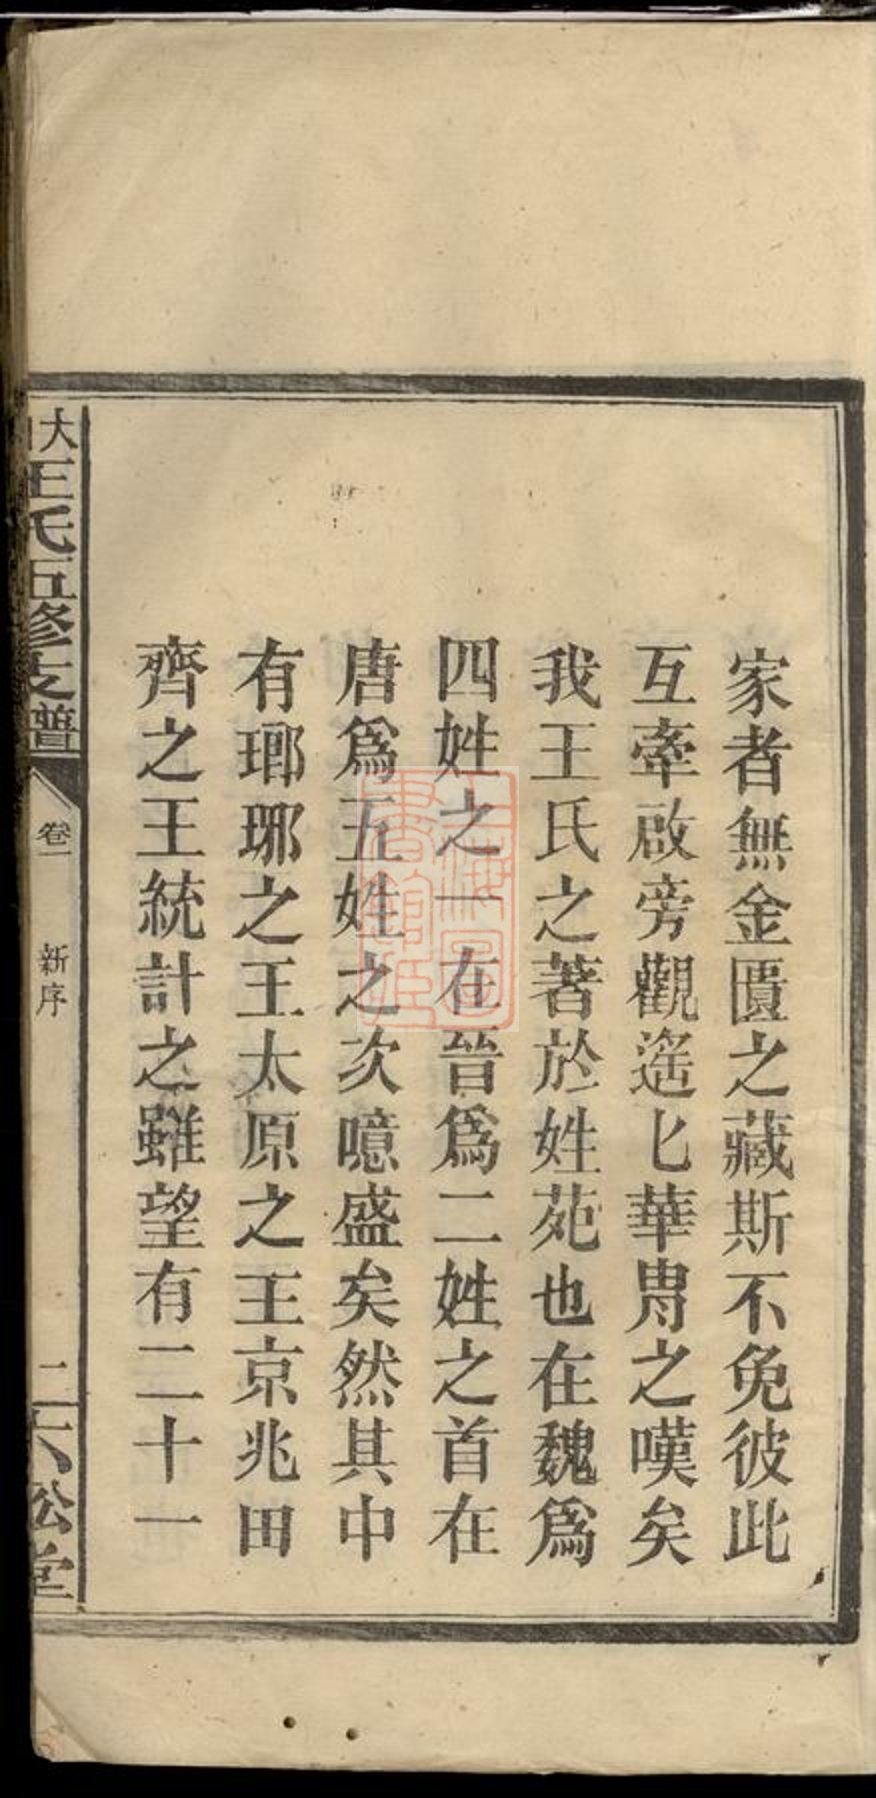 家者無金匱之藏斯不免彼此
互牽啟旁觀遙匕華胄之嘆矣
我王氏之著於姓苑也在魏爲
四姓之一在晉爲二姓之首在
唐爲五姓之次噫盛矣然其中
有瑯琊之王太原之王京兆田
齊之王統計之雖望有二十一
大
王氏五修支譜
卷一
新序
二
松堂
上海圖
書館藏